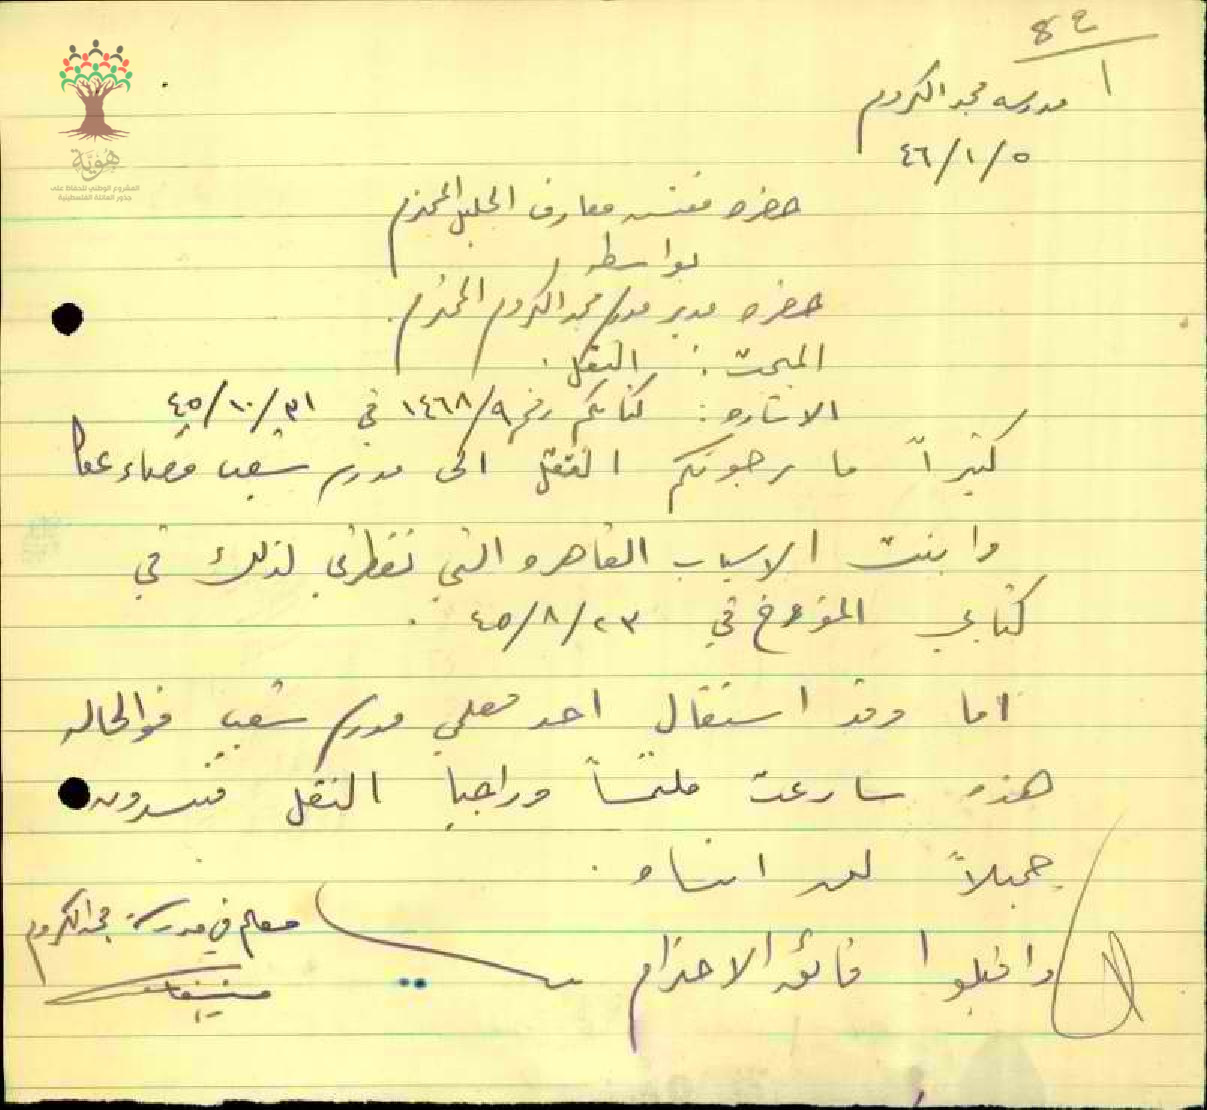 ٨٤
١
مدرسه مجد الكروم
٤٦/١/٥
هوية
المشروع الوطني للحفاظ على
جذور العائلة الفلسطينية
حضره مفتش معارف الجليل المحترم
بواسطه
حضره مدير مدرسة مجد الكروم المحترم.
المبحث : النقل .
الاشاره : كتابكم رقم ١٤٦٨/٩ في ٤٥/١٠/٣١
كثيراً ما رجوتكم النقل الى مدرسة شعب قضاء عكا
وابنت الاسباب القاهره التي تضطرني لذلك في
كتابي المؤرخ في ٤٥/٨/٢٣ .
اما وقد استقال احد معلمي مدرسة شعب فوالحاله
هذه سارعت ملتمساً وراجيا النقل فتسدون
جميلاً لن انساه .
واقبلوا فائق الاحترام
معلم في مدرسة مجد الكروم